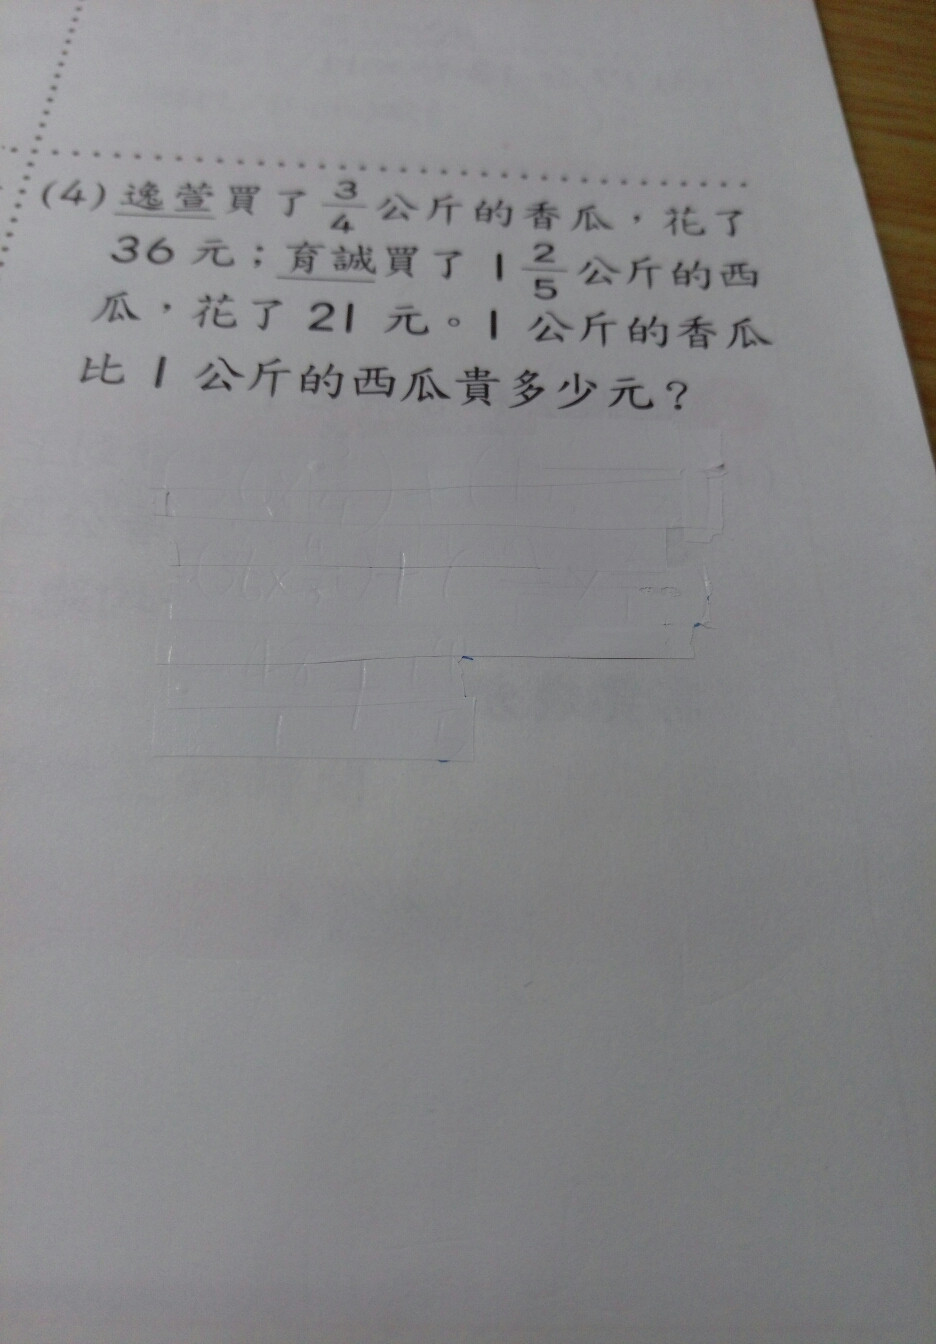 (4) 逸萱買了 3/4 公斤的香瓜，花了
36 元；育誠買了 1 2/5 公斤的西
瓜，花了 21 元。1 公斤的香瓜
比 1 公斤的西瓜貴多少元？